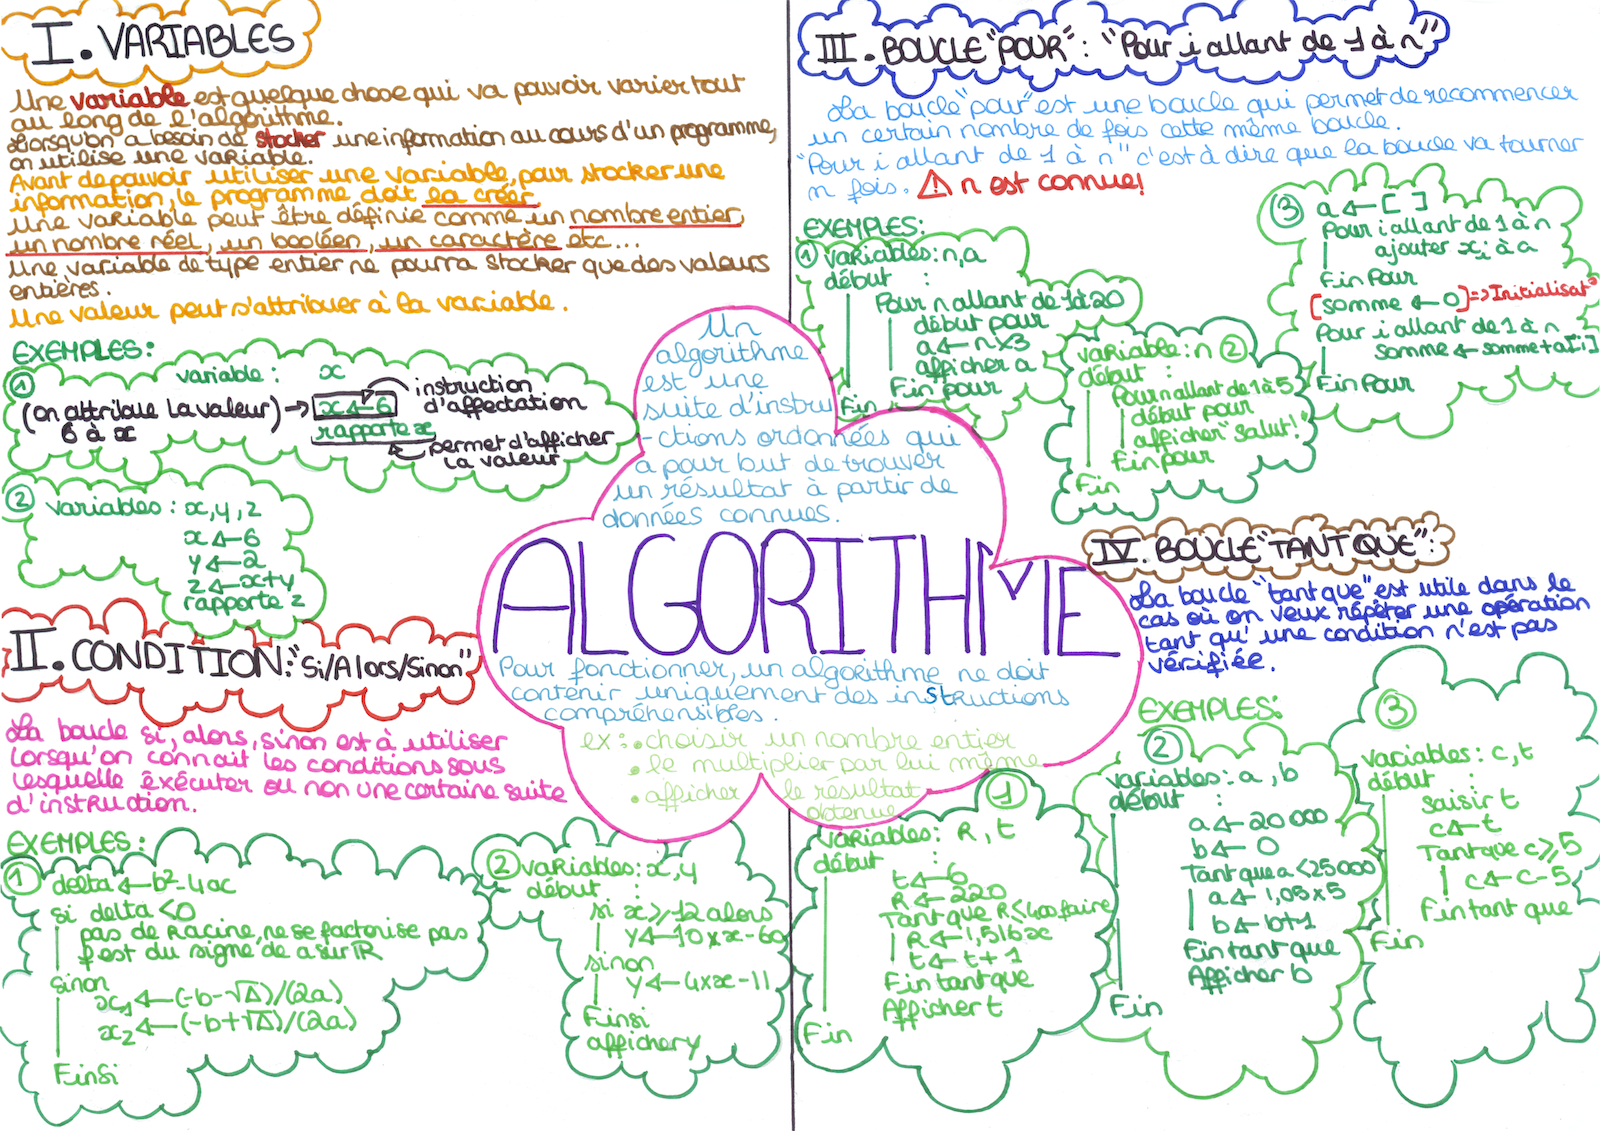 I. VARIABLES
Une variable est quelque chose qui va pouvoir varier tout
au long de l'algorithme.
Lorsqu'on a besoin de stocker une information au cours d'un programme,
on utilise une variable.
Avant de pouvoir utiliser une variable, pour stocker une
information, le programme doit la créer.
Une variable peut être définie comme un nombre entier,
un nombre réel, un booléen, un caractère etc...
Une variable de type entier ne pourra stocker que des valeurs
entières.
Une valeur peut s'attribuer à la variable.
EXEMPLES:
①
variable : x
(on attribue la valeur) → x ← 6
6 à x
instruction
d'affectation
rapporte x
permet d'afficher
la valeur
②
variables : x, y, z
x ← 6
y ← 2
z ← x+y
rapporte z
II. CONDITION: "Si/Alors/Sinon"
La boucle si, alors, sinon est à utiliser
lorsqu'on connait les conditions sous
lesquelle éxécuter ou non une certaine suite
d'instruction.
EXEMPLES:
①
delta ← b²-4ac
si delta <0
pas de racine, ne se factorise pas
f est du signe de a sur ℝ
sinon
x₁ ← (-b-√Δ)/(2a)
x₂ ← (-b+√Δ)/(2a)
FinSi
②
variables: x, y
début :
si x ⩾ 12 alors
y ← 10 x x - 60
sinon
y ← 4 x x - 11
Finsi
afficher y
Un
algorithme
est une
suite d'instru
-ctions ordonnées qui
a pour but de trouver
un résultat à partir de
données connues.
ALGORITHME
Pour fonctionner, un algorithme ne doit
contenir uniquement des instructions
compréhensibles.
ex : • choisir un nombre entier
• le multiplier par lui même
• afficher le résultat
obtenue
III. BOUCLE "POUR": "Pour i allant de 1 à n"
La boucle "pour" est une boucle qui permet de recommencer
un certain nombre de fois cette même boucle.
"Pour i allant de 1 à n" c'est à dire que la boucle va tourner
n fois. ⚠ n est connue!
EXEMPLES:
①
variables: n, a
début :
Pour n allant de 1 à 20
début pour
a ← n x 3
afficher a
Fin pour
Fin
variable: n ②
début :
Pour n allant de 1 à 5
début pour
afficher "Salut!"
Fin pour
Fin
③
a ← [ ]
Pour i allant de 1 à n
ajouter xᵢ à a
Fin Pour
[somme ← 0] => Initialisat°
Pour i allant de 1 à n
Somme ← somme+a[i]
Fin Pour
IV. BOUCLE "TANT QUE":
La boucle "tant que" est utile dans le
cas où on veux répéter une opération
tant qu' une condition n'est pas
vérifiée.
EXEMPLES:
①
variables: R, t
début :
t ← 0
R ← 220
Tant que R < 400 faire
R ← 1,516 x
t ← t + 1
Fin tant que
Afficher t
Fin
②
variables: a, b
début :
a ← 20 000
b ← 0
Tant que a < 25 000
a ← 1,05 x 5
b ← b+1
Fin tant que
Afficher b
Fin
③
variables: c, t
début :
saisir t
c ← t
Tant que c ⩾ 5
c ← c - 5
Fin tant que
Fin